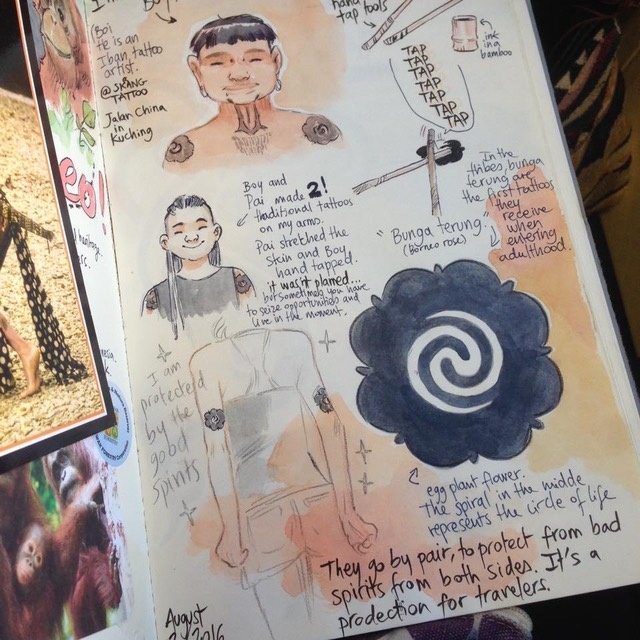 Boi
te is an
Iban tattoo
artist.
@SKRANG
TATTOO
Jalan China
in
Kuching
hand
tap tools
ink
in a
bamboo
TAP
TAP
TAP
TAP
TAP
TAP
TAP
Boy and
Pai made 2!
traditional tattoos
on my arms.
Pai stretched the
skin and Boy
hand tapped.
it wasn't planed...
but sometimes you have
to seize opportunities and
live in the moment.
In the
tribes, bunga
terung are
the first tattoos
they
receive
when
entering
adulthood.
"Bunga terung"
(Borneo rose)
I am
protected
by the
good
spirits
egg plant flower.
the spiral in the middle
represents the circle of life
They go by pair, to protect from bad
spirits from both sides. It's a
prodection for travelers.
August
2016